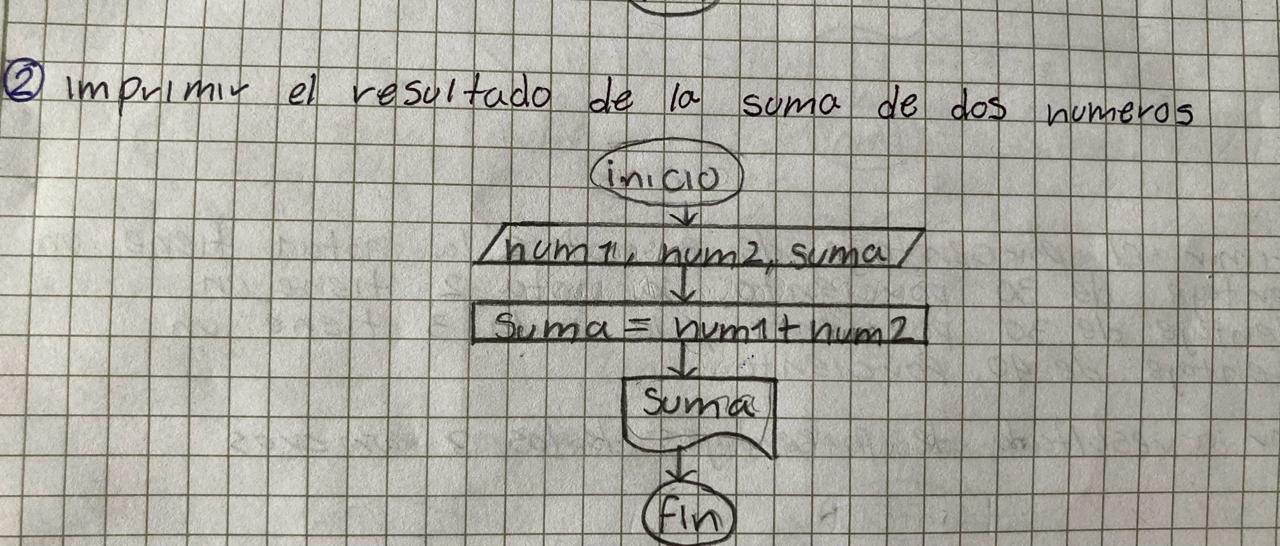 ② imprimir el resultado de la suma de dos numeros
inicio
num1, num2, suma
suma = num1 + num2
suma
Fin